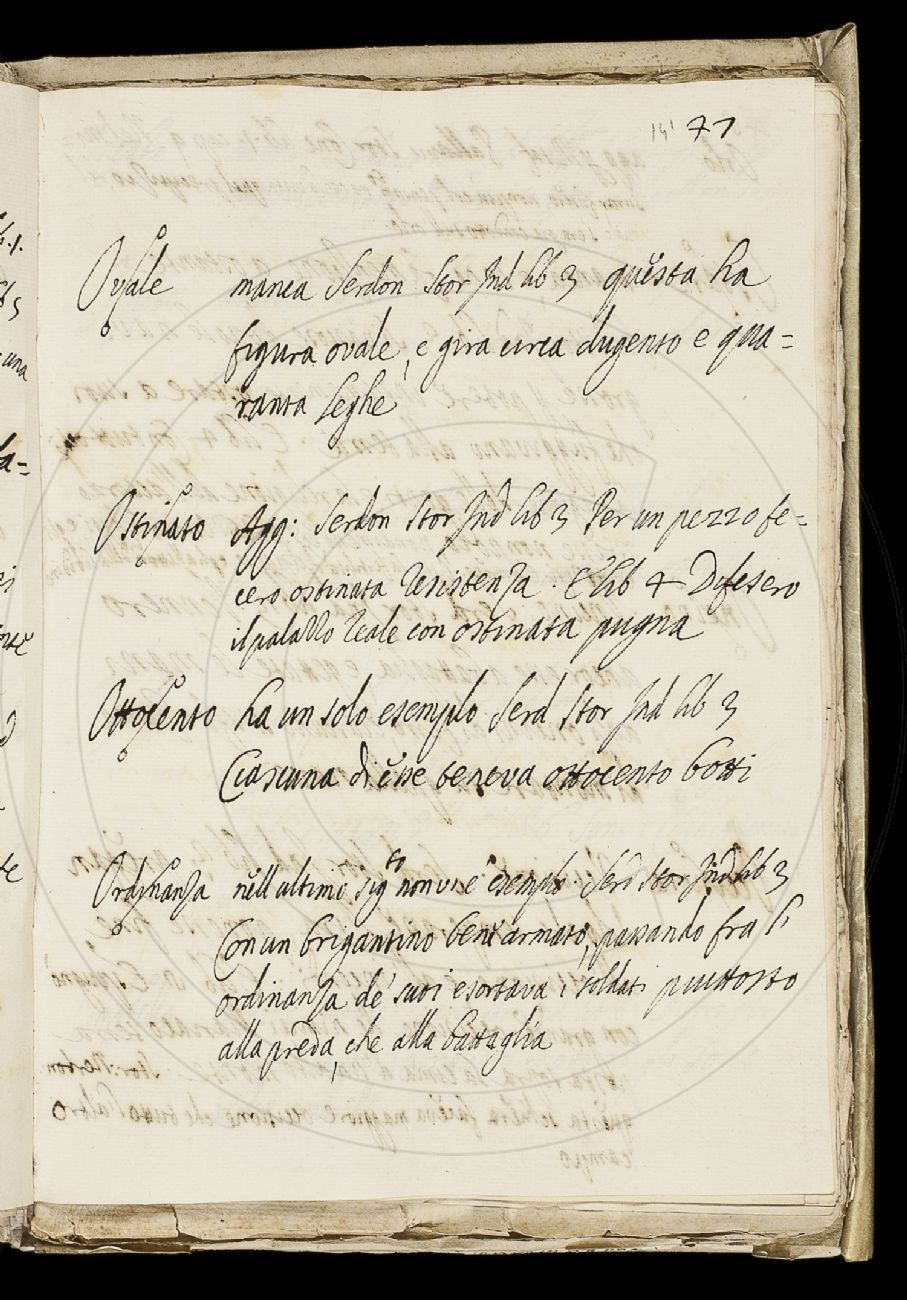 191 71
Ovale manca Serdon Stor Ind lib 3 questa ha
figura ovale, e gira circa dugento e qua=
ranta leghe
Ostinato Agg: Serdon Stor Ind lib 3 Per un pezzo fe=
cero ostinata resistenza. E lib 4 Difesero
il palazzo reale con ostinata pugna
Ottocento ha un solo esempio Serd Stor Ind lib 3
Ciascuna di esse teneva ottocento botti
Ordinanza nell ultimo sig.to non vi è esempio. Serd Stor Ind lib 3
Con un brigantino bene armato, passando fra li
ordinanza de' suoi esortava i soldati piuttosto
alla preda, che alla battaglia